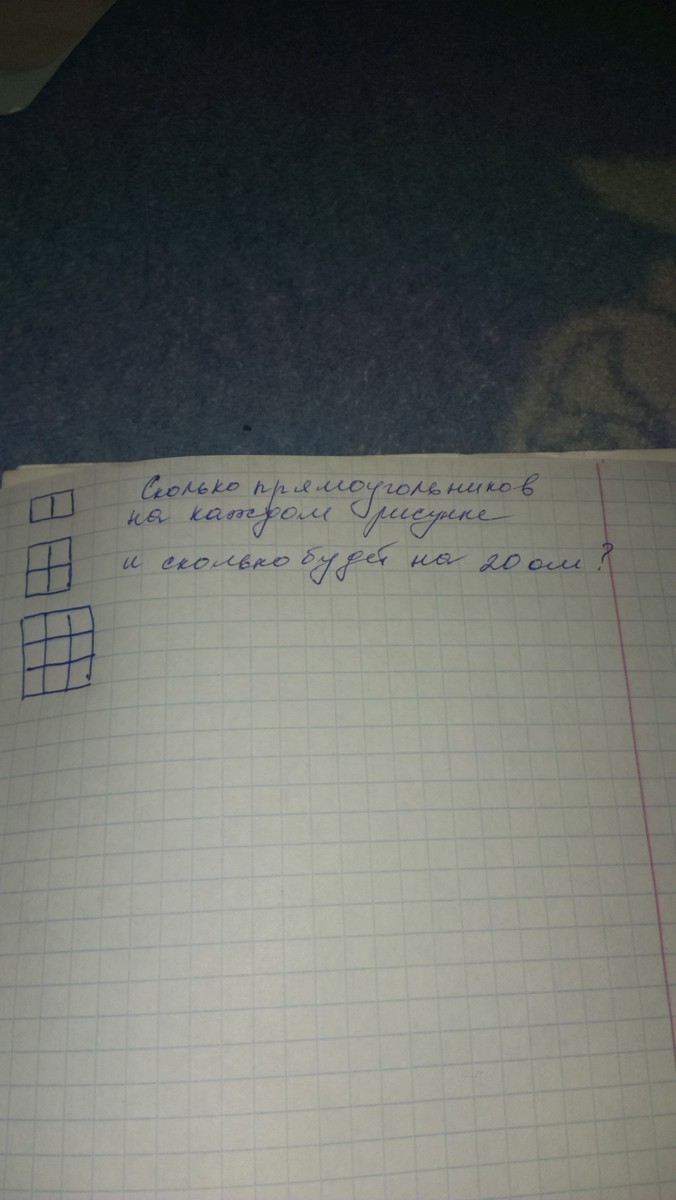 Сколько прямоугольников
на каждом рисунке
и сколько будет на 20ом?